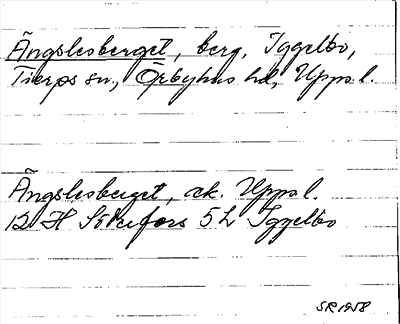 Ängslesberget, berg, Iggelbo,
Tierps sn., Örbyhus hd, Upps l.
Ängslesberget, ek. Upps l.
12 H Sökefors 5 h Iggelbo
SR 1958